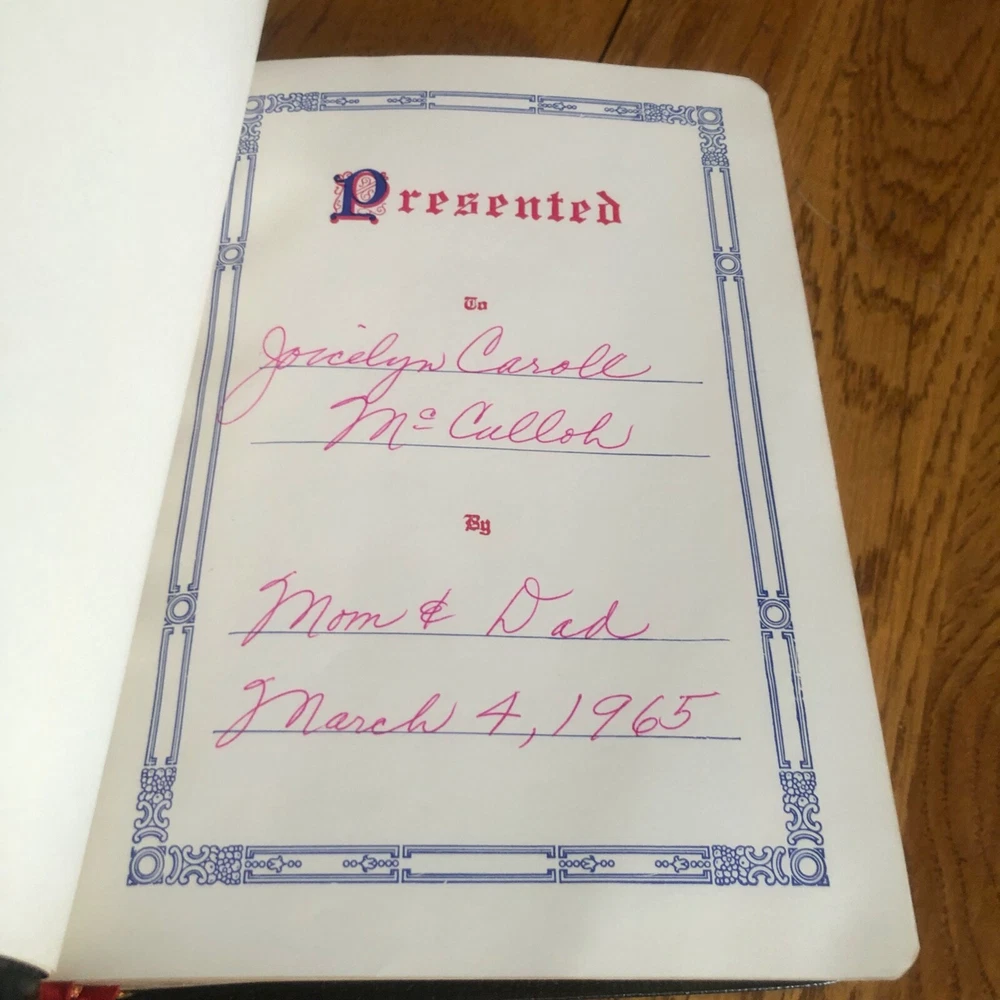 Presented
To
Joicelyn Caroll
Mc Culloh
By
Mom & Dad
March 4, 1965